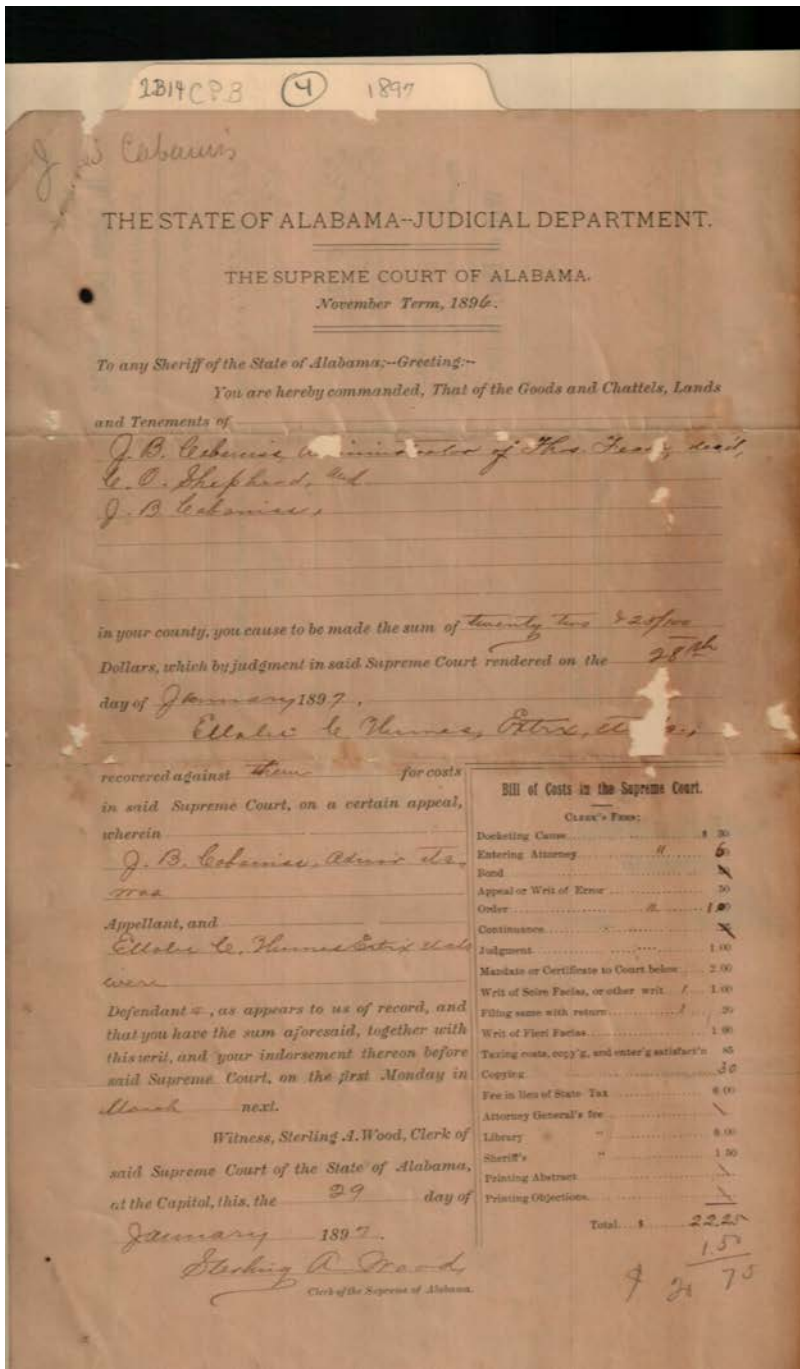 2B14 CPB (4) 1897
J B Cabaniss
THE STATE OF ALABAMA--JUDICIAL DEPARTMENT.
THE SUPREME COURT OF ALABAMA.
November Term, 1896.
To any Sheriff of the State of Alabama;--Greeting:--
You are hereby commanded, That of the Goods and Chattels, Lands
and Tenements of
J. B. Cabaniss, of Thos. dec'd,
C. O. Shepherd, and
J. B. Cabaniss,
in your county, you cause to be made the sum of twenty two & 25/100
Dollars, which by judgment in said Supreme Court rendered on the 28th
day of January 1897.
C. Humes, Extrx,
recovered against them for costs
in said Supreme Court, on a certain appeal,
wherein
J. B. Cabaniss, Admr
was
Appellant, and
C. Humes Extrx
were
Defendant s, as appears to us of record, and
that you have the sum aforesaid, together with
this writ, and your indorsement thereon before
said Supreme Court, on the first Monday in
March next.
Witness, Sterling A. Wood, Clerk of
said Supreme Court of the State of Alabama,
at the Capitol, this, the 29 day of
January 1897.
Sterling A. Wood,
Clerk of the Supreme of Alabama.
Bill of Costs in the Supreme Court.
CLERK'S FEES:
Docketing Cause $ 30
Entering Attorney
Bond
Appeal or Writ of Error 50
Order
Continuance
Judgment 1.00
Mandate or Certificate to Court below 2.00
Writ of Scire Facias, or other writ 1 1.00
Filing same with return 1 20
Writ of Fieri Facias 1 00
Taxing costs, copy'g, and enter'g satisfact'n 85
Copying 30
Fee in lieu of State Tax 6.00
Attorney General's fee
Library "
Sheriff's " 1 50
Printing Abstract
Printing Objections
Total $ 22.25
1.50
75